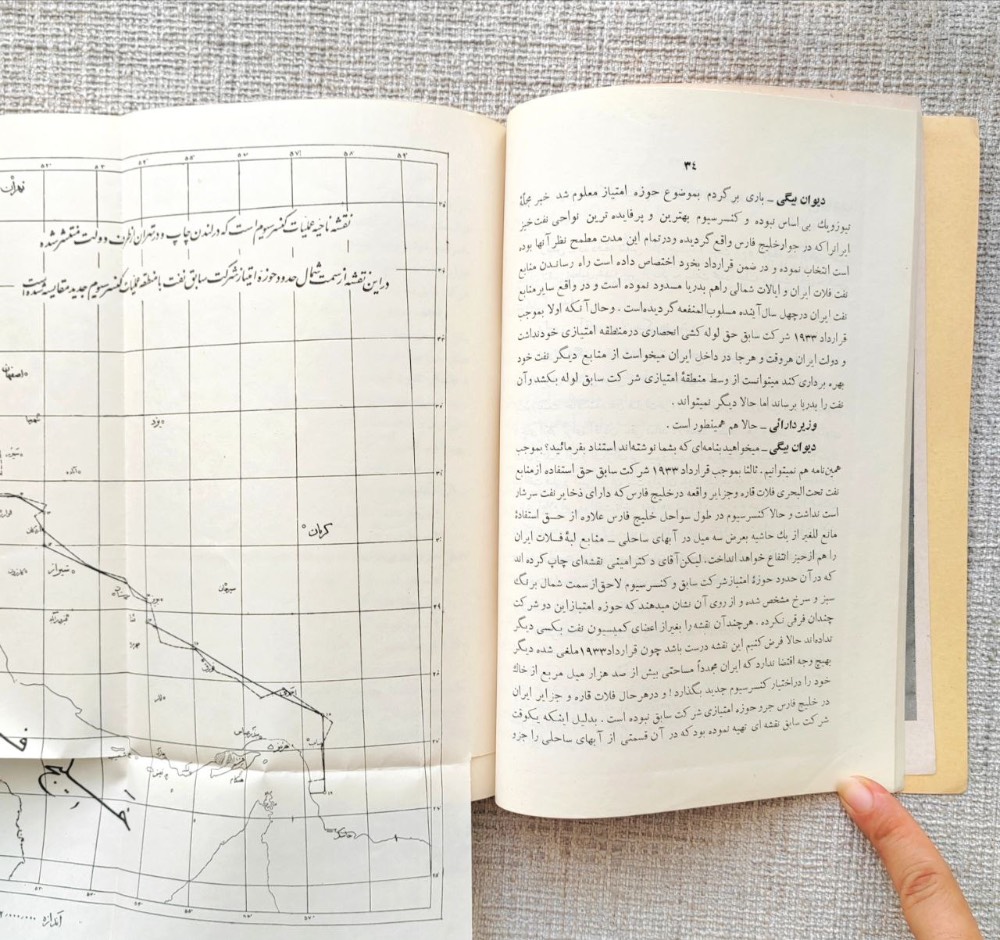 ۳٤
دیوان بیگی ــ باری برگردم بموضوع حوزه امتیاز معلوم شد خبر مجلهٔ
نیوزویك بی اساس نبوده و کنسرسیوم بهترین و پرفایده ترین نواحی نفت خیز
ایرانرا که در جوار خلیج فارس واقع گردیده ودرتمام این مدت مطمح نظر آنها بوده
است انتخاب نموده و در ضمن قرارداد بخود اختصاص داده است راه رساندن منابع
نفت فلات ایران و ایالات شمالی راهم بدریا مسدود نموده است و در واقع سایر منابع
نفت ایران درچهل سال آینده مسلوب المنفعه گردیده است . وحال آنکه اولا بموجب
قرارداد ۱۹۳۳ شرکت سابق حق لوله کشی انحصاری درمنطقه امتیازی خودنداشت
و دولت ایران هروقت و هرجا در داخل ایران میخواست از منابع دیگر نفت خود
بهره برداری کند میتوانست از وسط منطقهٔ امتیازی شرکت سابق لوله بکشد وآن
نفت را بدریا برساند اما حالا دیگر نمیتواند .
وزیردارائی ــ حالا هم همینطور است .
دیوان بیگی ــ میخواهید بنامه‌ای که بشما نوشته‌اند استناد بفرمائید؟ بموجب
همین نامه هم نمیتوانیم . ثالثا بموجب قرارداد ۱۹۳۳ شرکت سابق حق استفاده ازمنابع
نفت تحت البحری فلات قاره وجزایر واقعه درخلیج فارس که دارای ذخایر نفت سرشار
است نداشت و حالا کنسرسیوم در طول سواحل خلیج فارس علاوه از حق استفادهٔ
مانع للغیر از یك حاشیه بعرض سه میل در آبهای ساحلی ــ منابع لبهٔ فلات ایران
را هم ازحیز انتفاع خواهد انداخت. لیکن آقای دکتر امینی نقشه‌ای چاپ کرده اند
که درآن حدود حوزهٔ امتیاز شرکت سابق و کنسرسیوم لاحق از سمت شمال برنگ
سبز و سرخ مشخص شده و از روی آن نشان میدهند که حوزه امتیاز این دو شرکت
چندان فرقی نکرده . هرچند آن نقشه را بغیر از اعضای کمیسیون نفت بکسی دیگر
نداده‌اند حالا فرض کنیم این نقشه درست باشد چون قرارداد ۱۹۳۳ملغی شده دیگر
بهیچ وجه اقتضا ندارد که ایران مجدداً مساحتی بیش از صد هزار میل مربع از خاك
خود را دراختیار کنسرسیوم جدید بگذارد ! و درهر حال فلات قاره و جزایر ایران
در خلیج فارس جزو حوزه امتیازی شرکت سابق نبوده است . بدلیل اینکه یکوقت
شرکت سابق نقشه ای تهیه نموده بود که در آن قسمتی از آبهای ساحلی را جزو
نقشه ناحیه عملیات کنسرسیوم است که در لندن چاپ و در تهران از طرف دولت منتشر شده
در این نقشه از سمت شمال حدود حوزه امتیاز شرکت سابق نفت با منطقه عملیات کنسرسیوم جدید مقایسه شده است
تهران
اصفهان
یزد
کرمان
شیراز
سیرجان
بندرعباس
هرمز
هنگام
خلیج فا